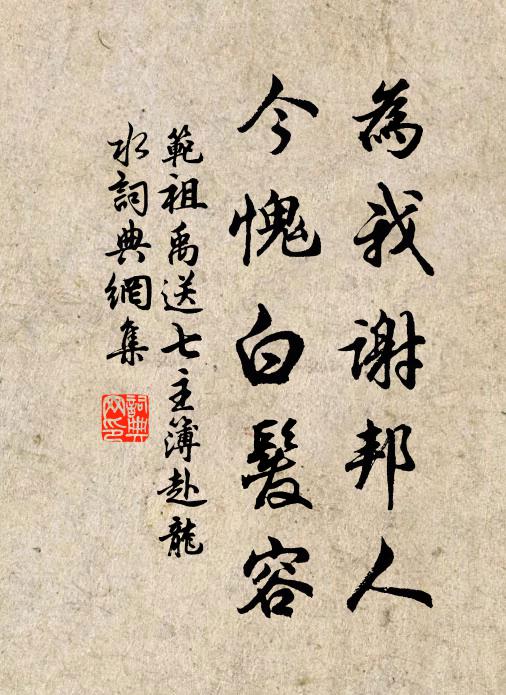 為我謝邦人
今愧白髮容
範祖禹送七主簿赴龍
水詞典網集
詞典網印